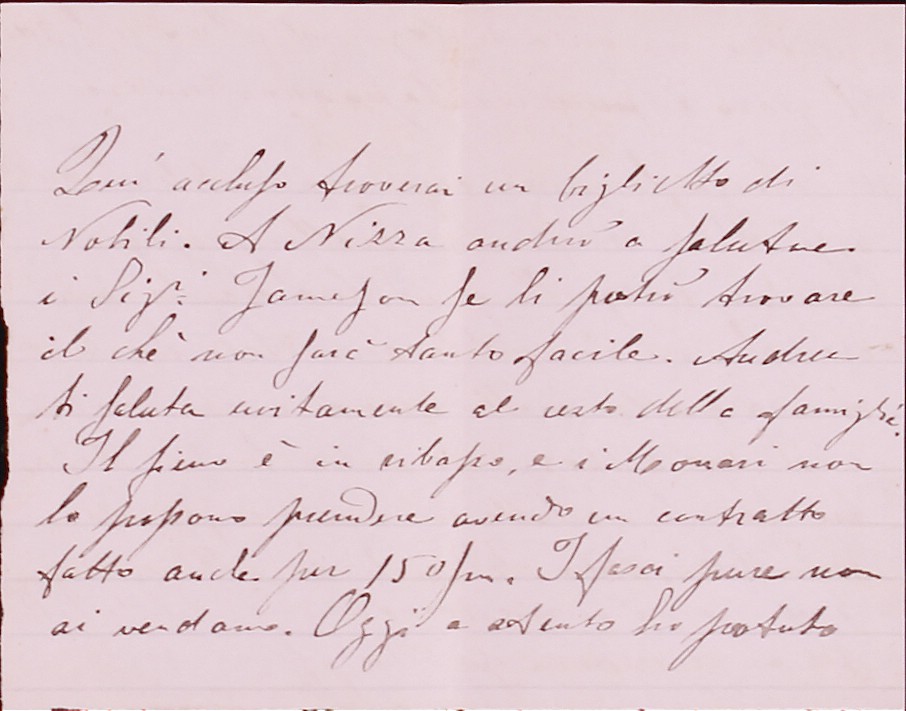 Quì accluso troverai un biglietto di
Nobili. A Nizza andrò a salutare
i Sigri Jameson se li potrò trovare
il chè non sarà tanto facile. Andrea
ti saluta unitamente al resto della famiglia.
Il fieno è in ribasso, e i Monari non
lo possono prendere avendo un contratto
fatto anche per 150 fm. I fasci pure non
si vendono. Oggi a stento ho potuto